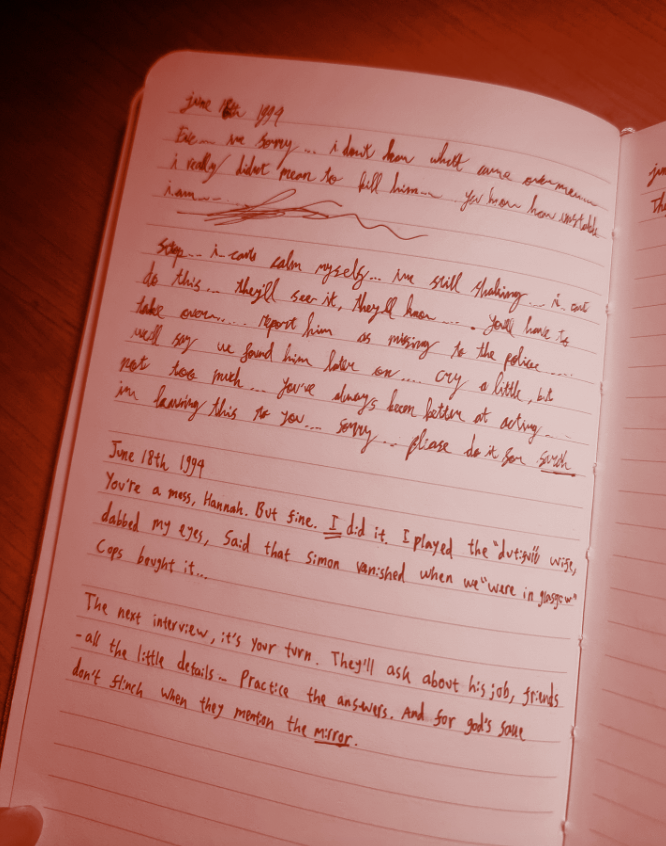 june 18th 1994
Eve.... ive sorry... i dont know whatt came over me......
i really didnt mean to kill him..... You know how unstable
i am.....
stop... i cant calm myself... ive still shaking... i cant
do this... they'll see it, they'll know.... . You'll have to
take over..... report him as missing to the police....
we'll say we found him later on.... cry a little, but
not too much... you've always been better at acting....
im leaving this to you.... sorry... please do it for
June 18th 1994
You're a mess, Hannah. But fine. I did it. I played the "dutiful" wife,
dabbed my eyes, said that simon vanished when we "were in glasgow"
Cops bought it...
The next interview, it's your turn. They'll ask about his job, friends
- all the little details... Practice the answers. And for god's sake
don't flinch when they mention the mirror.
ju
Th